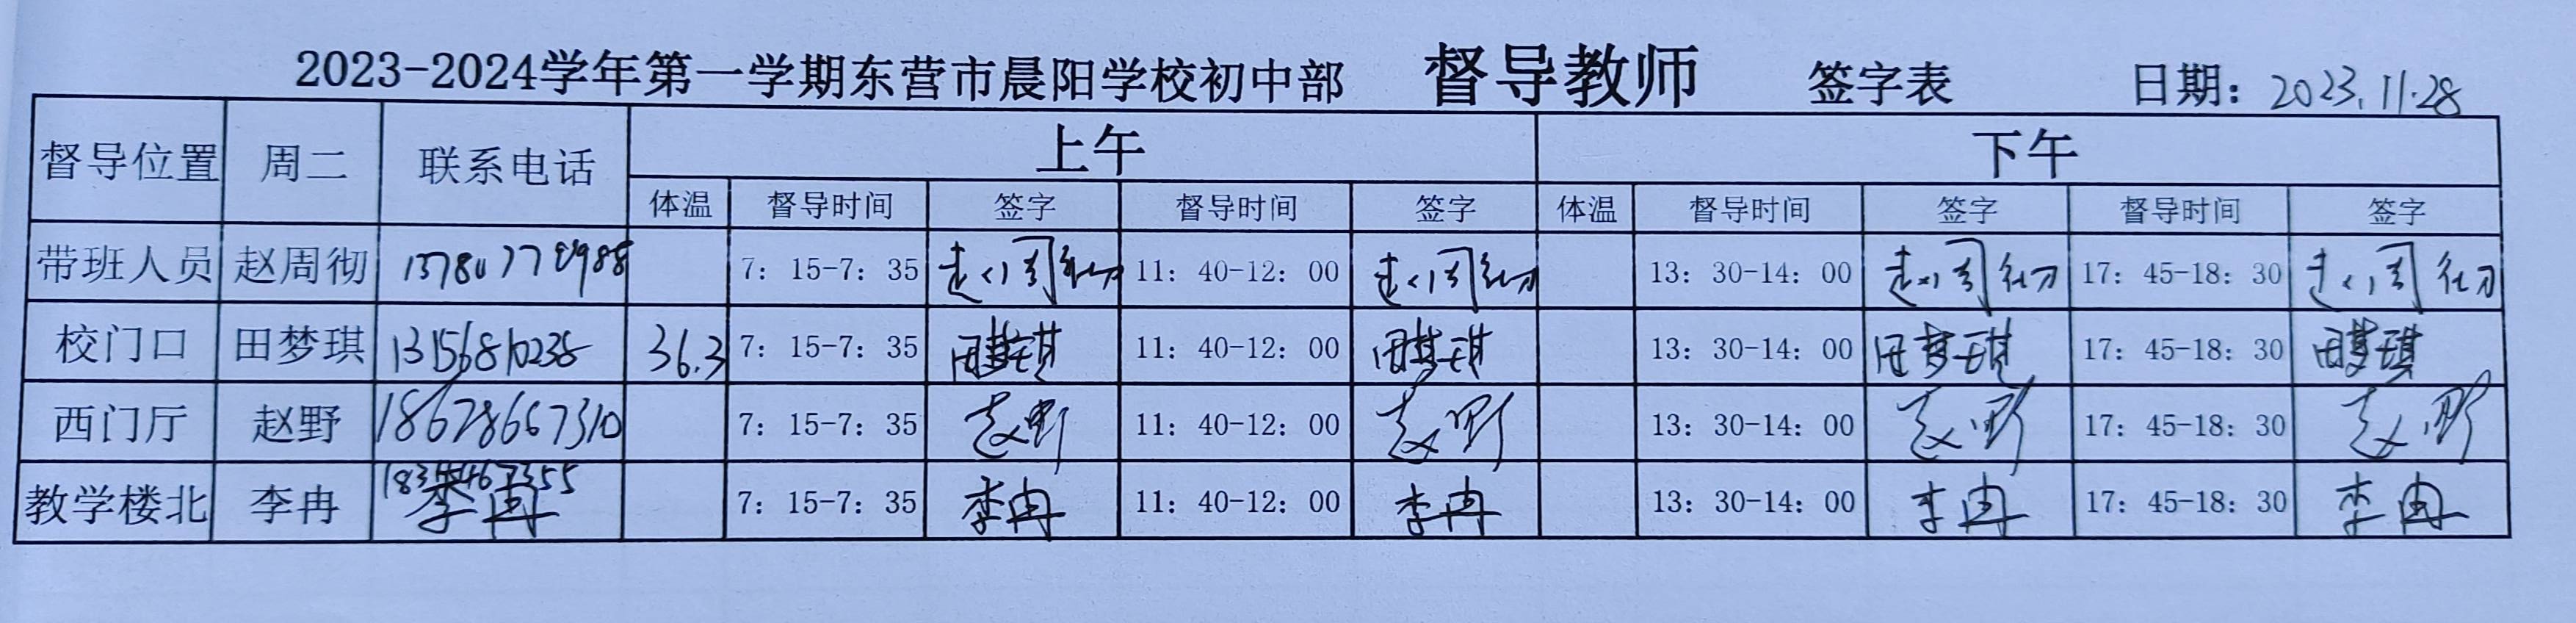 2023-2024学年第一学期东营市晨阳学校初中部 督导教师 签字表 日期：2023.11.28
督导位置 周二 联系电话 上午 下午
体温 督导时间 签字 督导时间 签字 体温 督导时间 签字 督导时间 签字
带班人员 赵周彻 7：15-7：35 赵周彻 11：40-12：00 赵周彻 13：30-14：00 赵周彻 17：45-18：30 赵周彻
校门口 田梦琪 13156810238 36.3 7：15-7：35 田梦琪 11：40-12：00 田梦琪 13：30-14：00 田梦琪 17：45-18：30 田梦琪
西门厅 赵野 18678667310 7：15-7：35 赵野 11：40-12：00 赵野 13：30-14：00 赵野 17：45-18：30 赵野
教学楼北 李冉 李冉 7：15-7：35 李冉 11：40-12：00 李冉 13：30-14：00 李冉 17：45-18：30 李冉